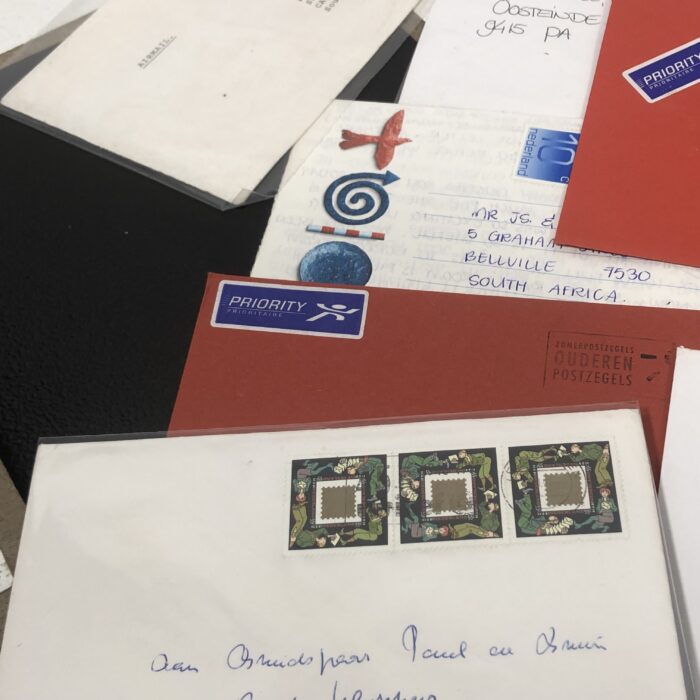 AIRMAIL
OOSTEINDE
9415 PA
PRIORITY
PRIORITAIRE
10
c
nederland
MR JS. &
5 GRAHAM
BELLVILLE 7530
SOUTH AFRICA.
PRIORITY
PRIORITAIRE
ZOMERPOSTZEGELS
OUDEREN
POSTZEGELS
aan Bruidspaar Paul en